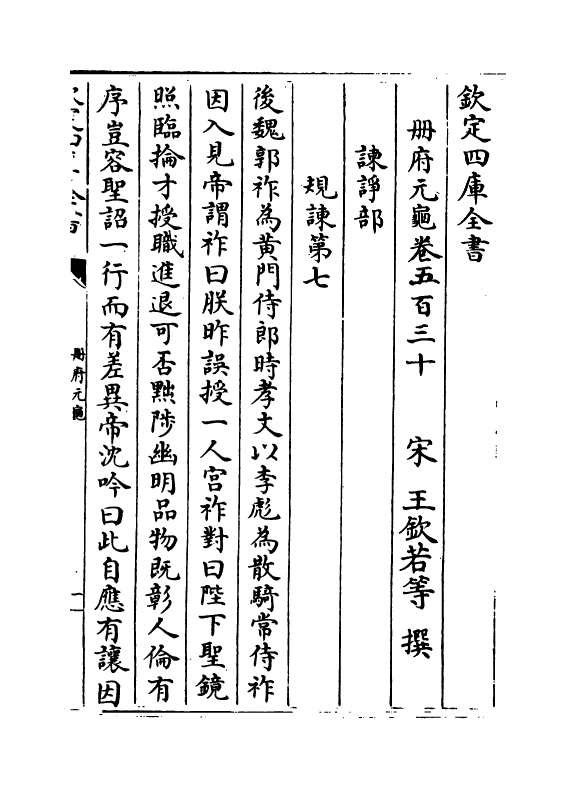 欽定四庫全書
册府元龜卷五百三十　宋　王欽若等　撰
諫諍部
規諫第七
後魏郭祚為黄門侍郎時孝文以李彪為散騎常侍祚
因入見帝謂祚曰朕昨誤授一人宫祚對曰陛下聖鏡
照臨掄才授職進退可否黜陟幽明品物既彰人倫有
序豈容聖詔一行而有差異帝沈吟曰此自應有讓因
册府元龜